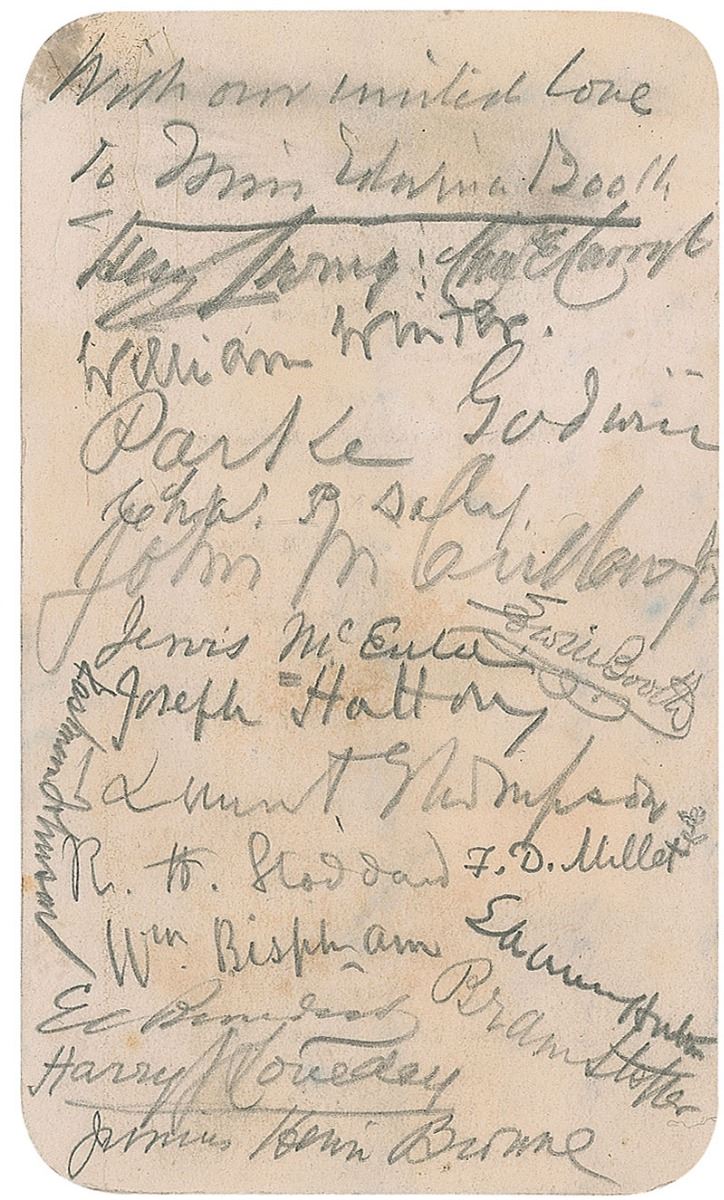 With our united love
To Miss Edwina Booth
Henry Irving Chas E Carryl
William Winter.
Parke Godwin
Chas. P. Daly.
John McCullough
Jervis McEntee
Edwin Booth
Joseph Hatton
Launt Thompson
R. H. Stoddard F. D. Millet
Wm. Bispham
Laurence Hutton
E C Benedict
Bram Stoker
Harry J Loveday
Junius Henri Browne